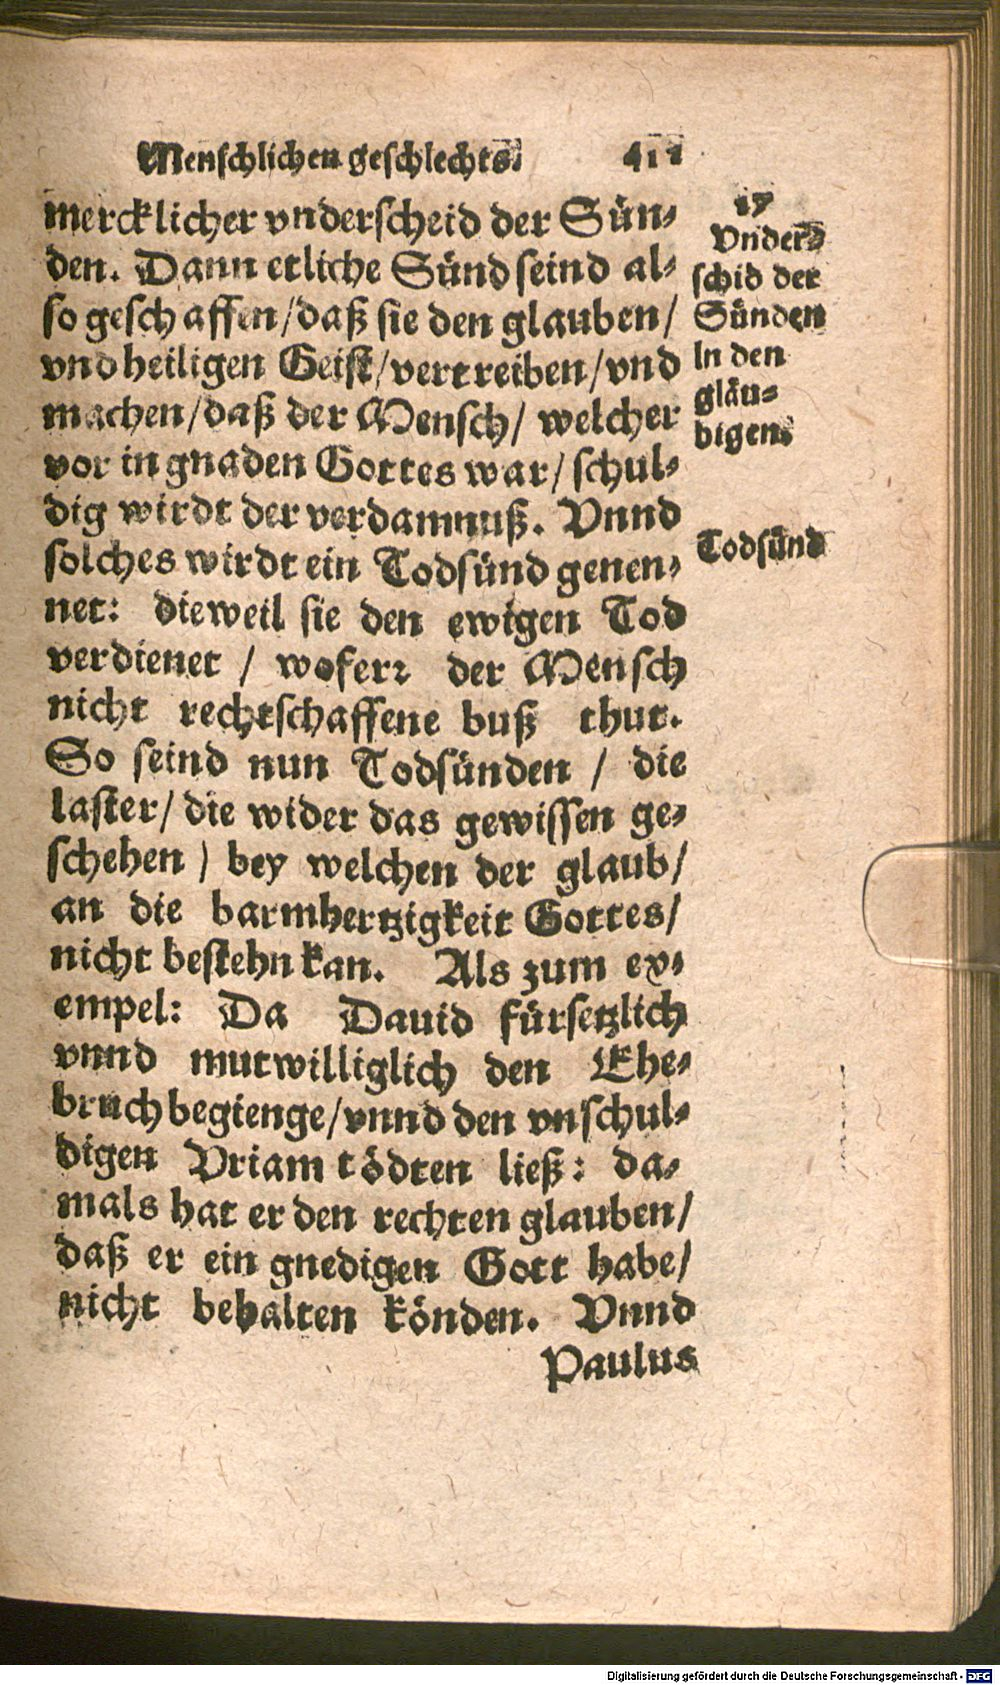 Menschlichen geschlechts. 411
mercklicher vnderscheid der Sün⸗
den. Dann etliche Sünd seind al⸗
so geschaffen / daß sie den glauben /
vnd heiligen Geist / vertreiben / vnd
machen / daß der Mensch / welcher
vor in gnaden Gottes war / schul⸗
dig wirdt der verdamnuß. Vnnd
solches wirdt ein Todsünd genen⸗
net: dieweil sie den ewigen Tod
verdienet / woferꝛ der Mensch
nicht rechtschaffene buß thut.
So seind nun Todsünden / die
laster / die wider das gewissen ge⸗
schehen ) bey welchen der glaub /
an die barmhertzigkeit Gottes /
nicht bestehn kan. Als zum ex⸗
empel: Da Dauid fürsetzlich
vnnd mutwilliglich den Ehe⸗
bruch begienge / vnnd den vnschul⸗
digen Vriam tödten ließ: da⸗
mals hat er den rechten glauben /
daß er ein gnedigen Gott habe /
nicht behalten könden. Vnnd
Paulus
17
Vnder⸗
schid der
Sünden
in den
gläu⸗
bigen.
Todsünd
Digitalisierung gefördert durch die Deutsche Forschungsgemeinschaft - DFG